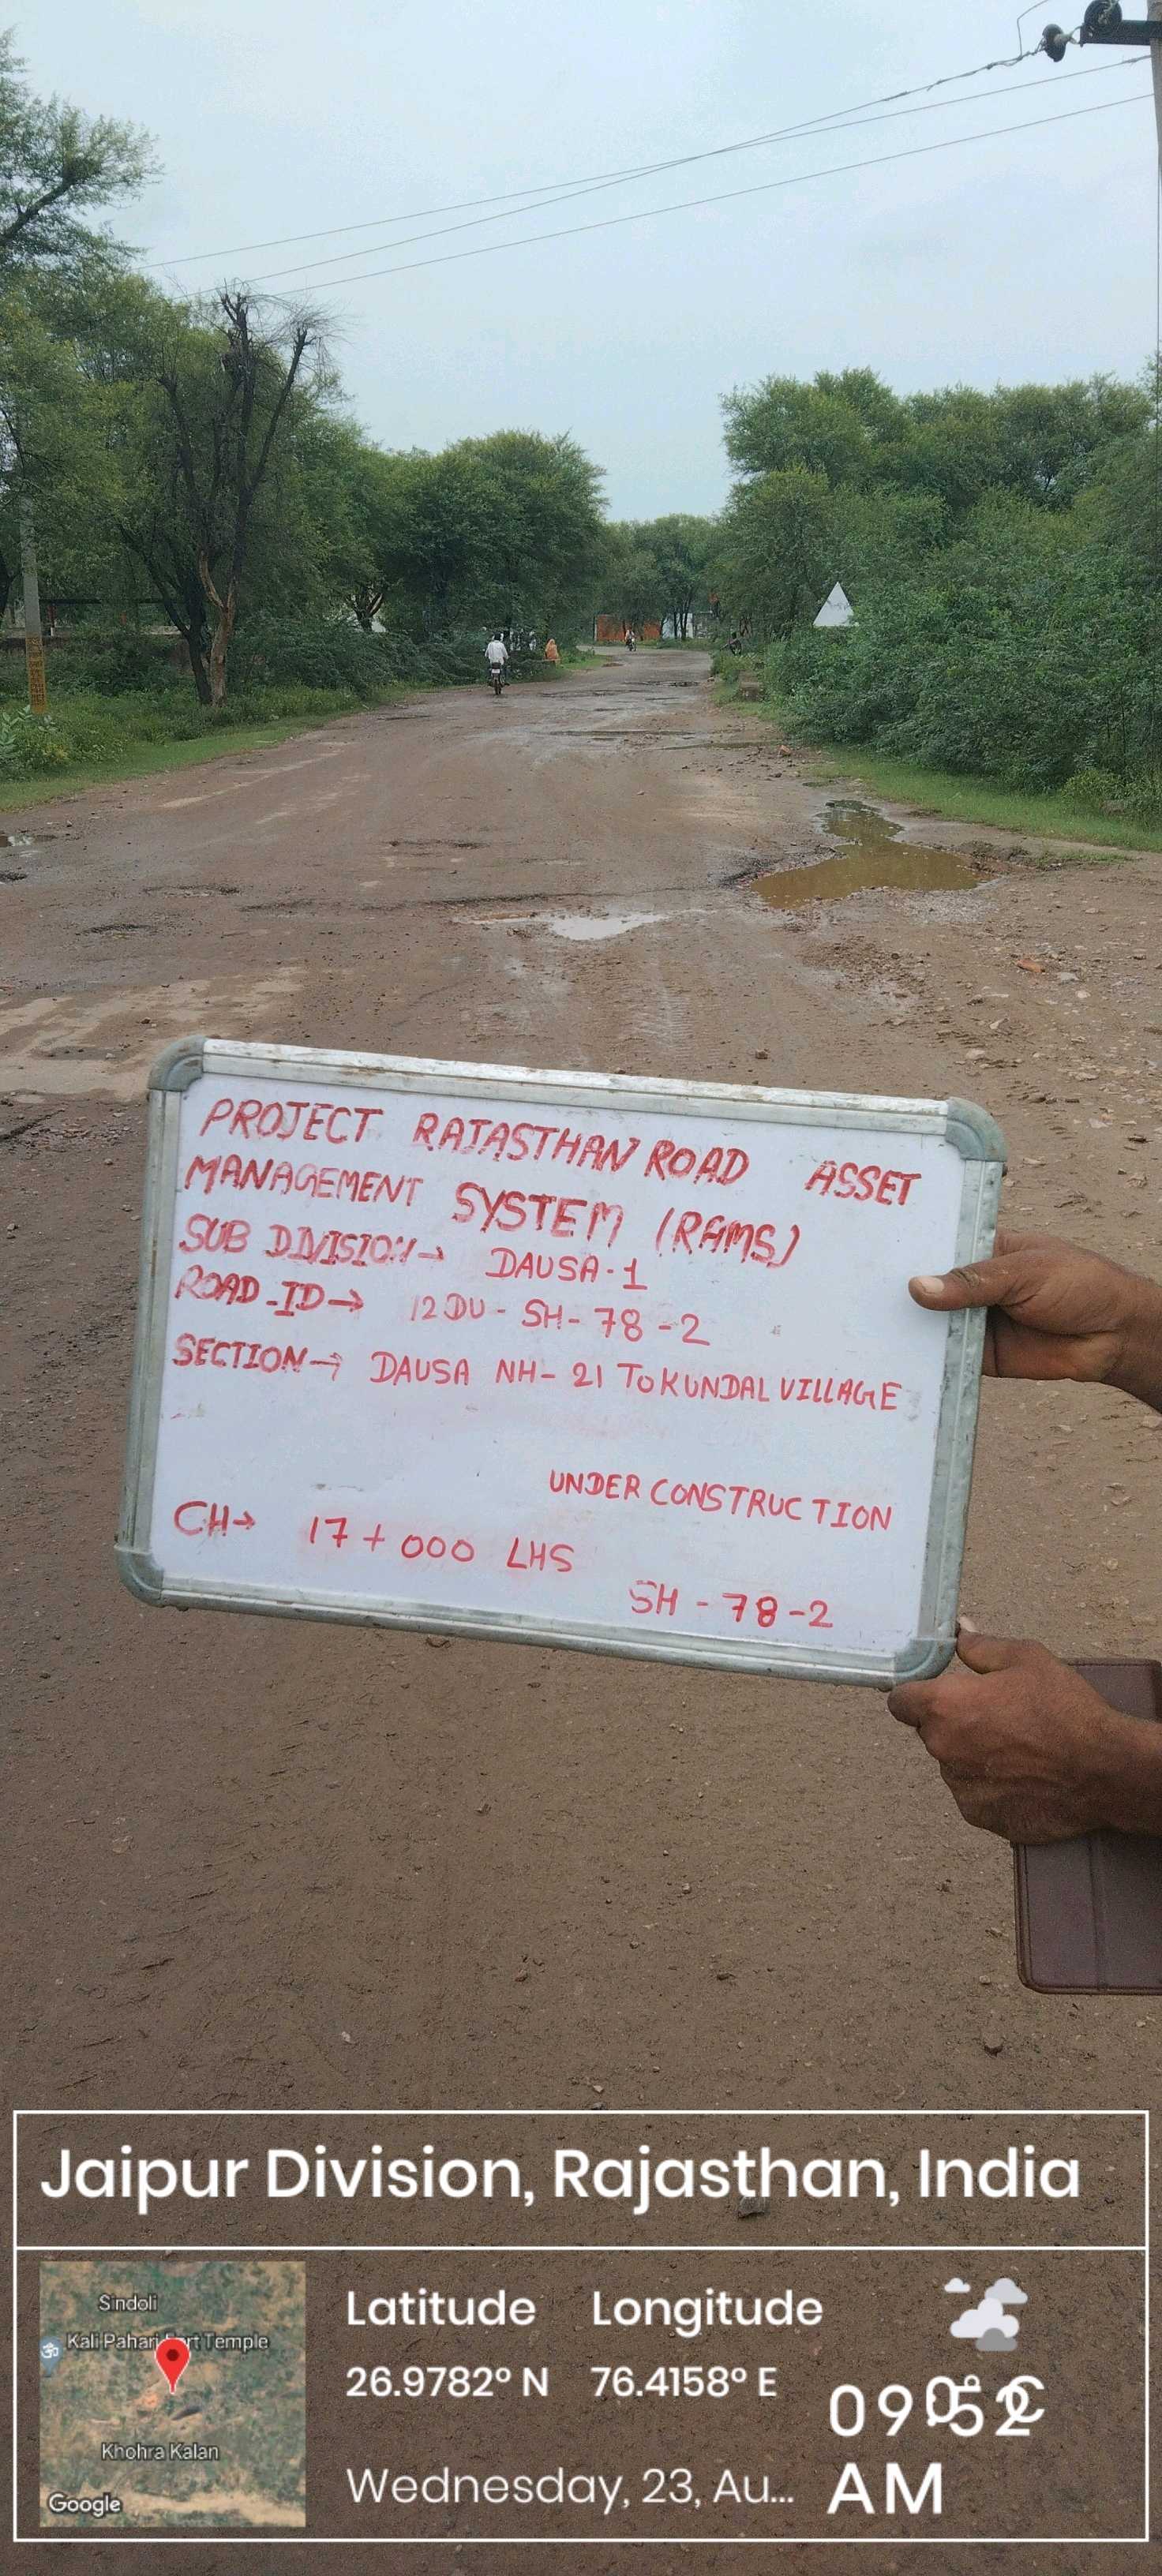 PROJECT RAJASTHAN ROAD ASSET
MANAGEMENT SYSTEM (RAMS)
SUB DIVISION→ DAUSA-1
ROAD-ID→ 12DU-SH-78-2
SECTION→ DAUSA NH-21 TO KUNDAL VILLAGE
UNDER CONSTRUCTION
CH→ 17+000 LHS
SH-78-2
Jaipur Division, Rajasthan, India
Sindoli
Kali Pahari Fort Temple
Khohra Kalan
Google
Latitude Longitude
26.9782° N 76.4158° E
Wednesday, 23, Au...
AM